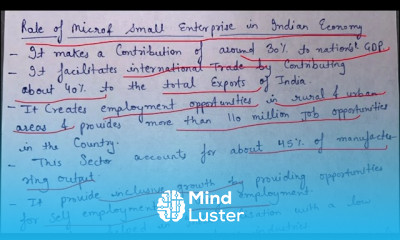 Role of Microf Small Enterprise in Indian Economy
- It makes a Contribution of around 30% to national GDP.
- It facilitates international Trade by Contributing
about 40% to the total Exports of India
- It Creates employment opportunities in rural & urban
areas & provides more than 110 million Job opportunities
in the Country.
- This Sector accounts for about 45% of manufactu
ring output.
- It provide inclusive growth by providing opportunities
for self employment
with a low
Mind
Luster